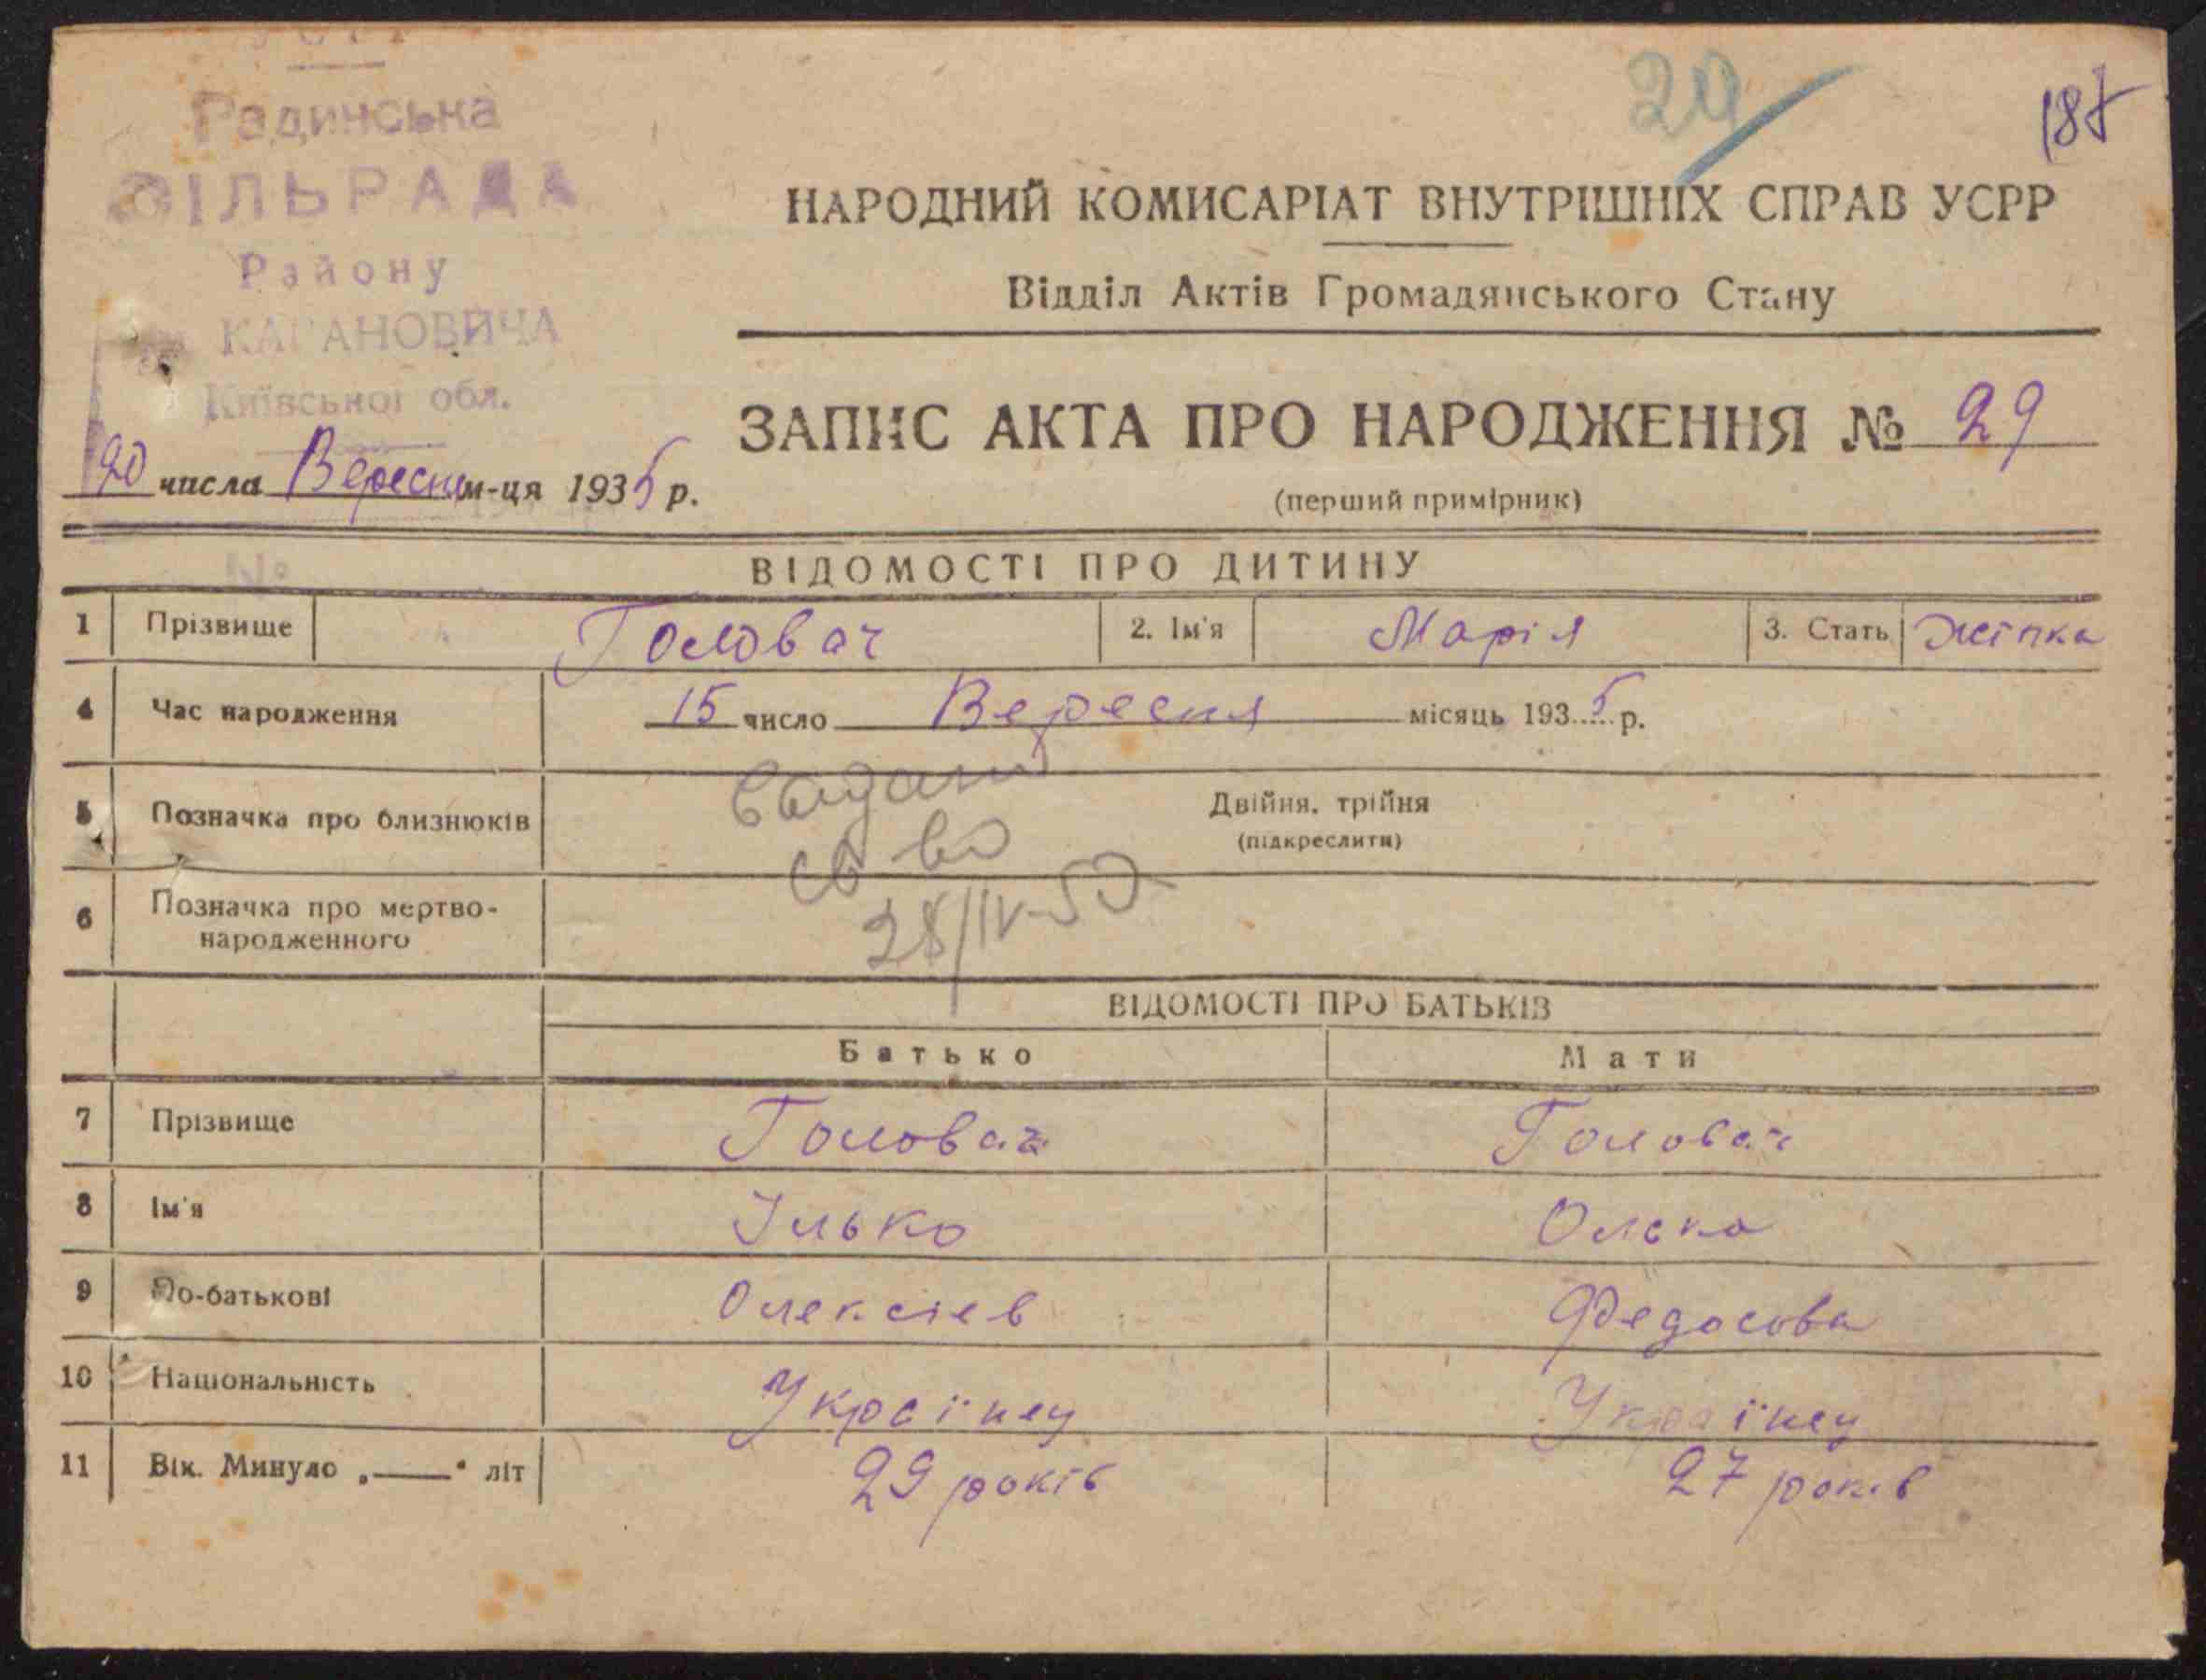 УСРР
Радинська
СІЛЬРАДА
Району
КАГАНОВИЧА
Київської обл.
20 числа Вересня м-ця 1935 р.
№
29
187
НАРОДНИЙ КОМИСАРІАТ ВНУТРІШНІХ СПРАВ УСРР
Відділ Актів Громадянського Стану
ЗАПИС АКТА ПРО НАРОДЖЕННЯ № 29
(перший примірник)
ВІДОМОСТІ ПРО ДИТИНУ
1 Прізвище Головач 2. Ім'я Марія 3. Стать Жінка
4 Час народження 15 число Вересня місяць 1935 р.
5 Позначка про близнюків Двійня, трійня
(підкреслити)
св-во
28/IV-52
6 Позначка про мертво-
народженного
ВІДОМОСТІ ПРО БАТЬКІВ
Батько Мати
7 Прізвище Головач Головач
8 Ім'я Ілько Ольга
9 По-батькові Олексієв Федосова
10 Національність Украінец Украінец
11 Вік. Минуло „——“ літ 29 років 27 років